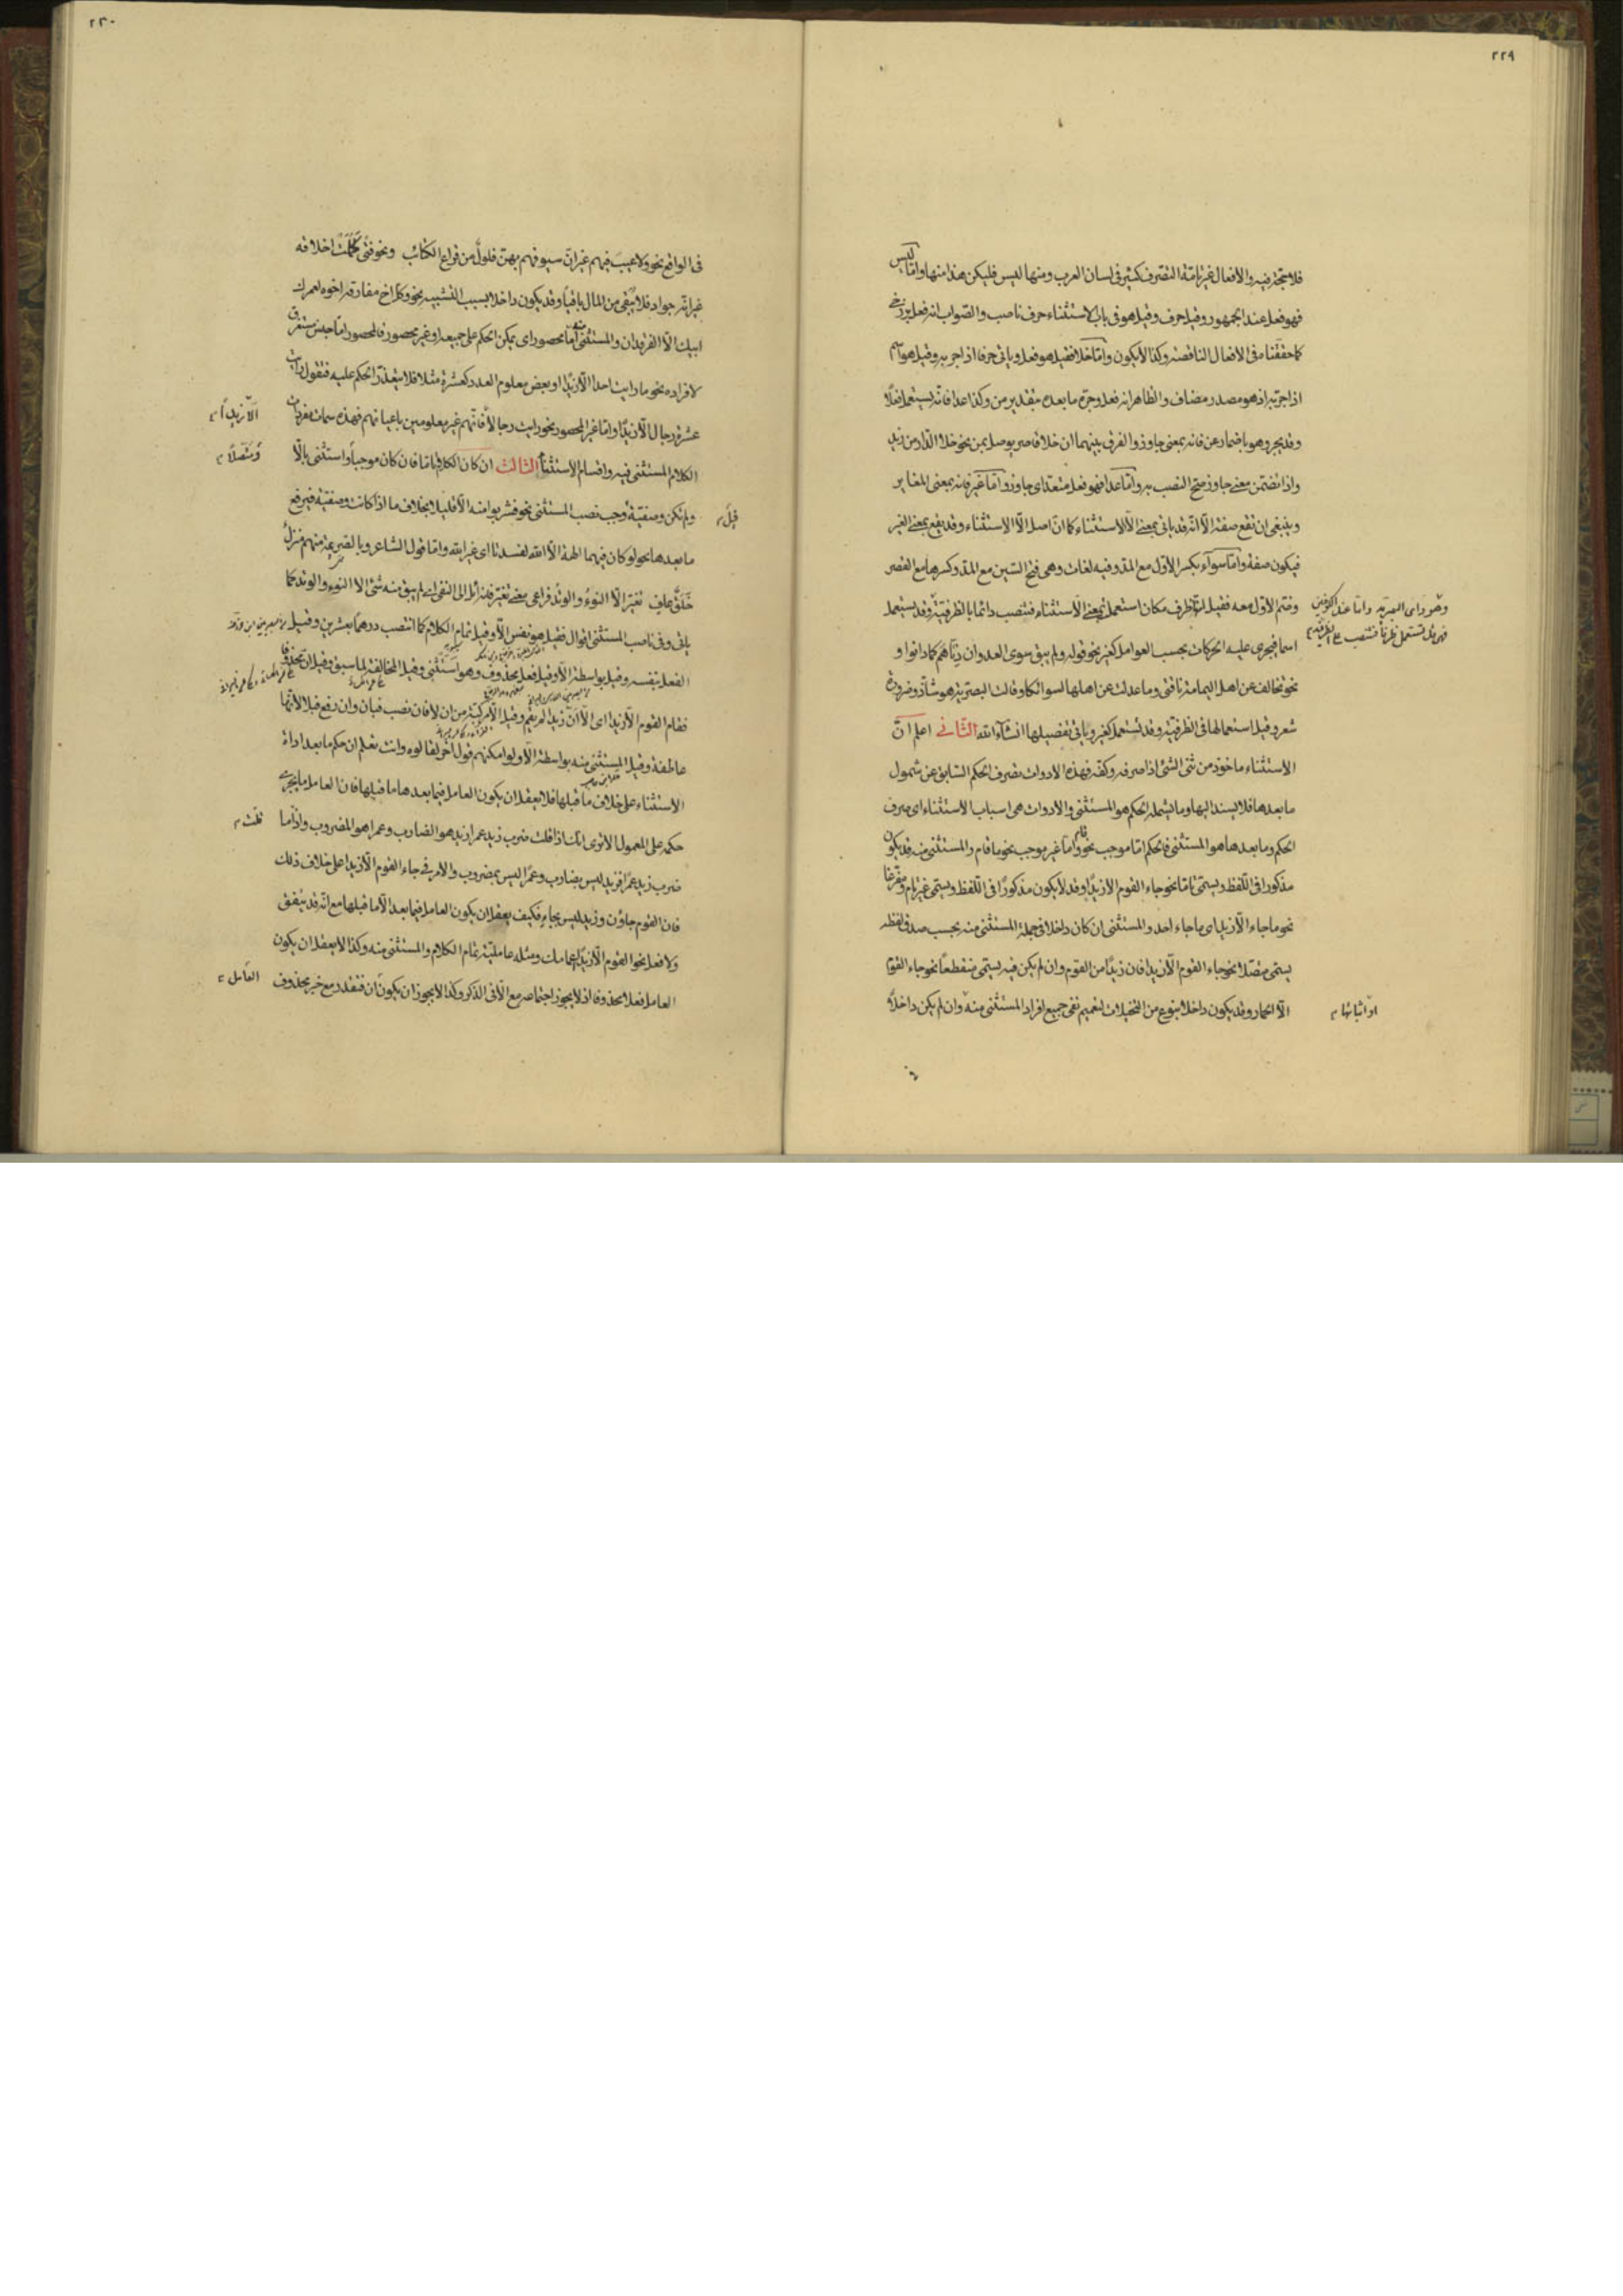 ٢٢٩
فلا محذور فيه والافعال غير تامة التصرف كثير في لسان العرب ومنها ليس فليكن هذا منها واما ليس
فهو فعل عند الجمهور وقيل حرف وقيل هو في باب الاستثناء حرف ناصب والصواب انه فعل
كما حققناه في الافعال الناقصه وكذا لا يكون واما خلا فقيل هو فعل وياتي حرفا اذا جر به وقيل هو اسم
اذا جر به اذ هو مصدر مضاف والظاهر انه فعل وجره ما بعده بتقدير من وكذا عدا فانه يستعمل فعلا
وقد يجر وهو باضمار عن فانه بمعنى جاوز والفرق بينهما ان خلا قاصر يوصل بمن نحو خلا الدار من زيد
واذا تضمن معنى جاوز صح النصب به واما عدا فهو فعل متعد اى جاوز واما غير فانه بمعنى المغاير
وينبغى ان تقع صفة الا انه قد ياتي بمعنى الا للاستثناء كما ان اصل الا الاستثناء وقد يقع بمعنى الغير
فيكون صفة واما سوآء بكسر الاول مع المد وفيه لغات وهى فتح السين مع المد وكسرها مع القصر
وضم الاول معه فقيل انها ظرف مكان استعملت بمعنى الا للاستثناء فتنصب دائما بالظرفية وقد يستعمل
وهو راى البصرية واما عند الكوفيين
اسما فيجرى عليه الحركات بحسب العوامل كغير نحو قوله ولم يبق سوى العدوان دناهم كما دانوا و
نحو تخالف عن اهل اليمامة ناقتى وما عدلت عن اهلها لسوائكا وقالت البصرية هو شاذ وضرورة
شعر وقيل استعمالها في الظرفية وقد تستعمل كغير وياتي تفصيلها انشاء الله الثاني اعلم ان
الاستثناء ماخوذ من ثنى الشئ اذا صرفه وكفه فهذه الادوات تصرف الحكم السابق عن شمول
ما بعدها فلا يسند اليها وما يشمله الحكم هو المستثنى والادوات هى اسباب الاستثناء اى صرف
الحكم وما بعدها هو المستثنى فالحكم اما موجب نحو قام واما غير موجب نحو ما قام والمستثنى منه قد يكون
مذكورا في اللفظ ويسمى تاما نحو جاء القوم الا زيدا وقد لا يكون مذكورا في اللفظ ويسمى غير تام ومفرغا
نحو ما جاء الا زيد اى ما جاء احد والمستثنى ان كان داخلا في جملة المستثنى منه بحسب صدق لفظه
يسمى متصلا نحو جاء القوم الا زيدا فان زيدا من القوم وان لم يكن فيه يسمى منقطعا نحو جاء القوم
الا الحمار وقد يكون داخلا بنوع من التخيلات لتعميم نفى جميع افراد المستثنى منه وان لم يكن داخلا
او اثباتها
في
٢٣٠
في الواقع نحو ولا عيب فيهم غير ان سيوفهم بهن فلول من قراع الكتائب ونحو فتى كملت اخلاقه
غير انه جواد فلا يبقى من المال باقيا وقد يكون داخلا بسبب التشبيه نحو وكل اخ مفارقه اخوه لعمر
ابيك الا الفرقدان والمستثنى منه اما محصور اى يمكن الحكم على جميعه او غير محصور فالمحصور اما جنس مستغرق
لافراده نحو ما رايت احدا الا زيدا او بعض معلوم العدد كعشرة مثلا فلا يتعذر الحكم عليه فتقول رايت
عشرة رجال الا زيدا واما غير المحصور نحو رايت رجالا فانهم غير معلومين باعيانهم فهذه سمات مفردات
الا زيدا
الكلام المستثنى فيه واقسام الاستثناء الثالث ان كان الكلام تاما فان كان موجبا واستثنى بالا
ومتصلا
ولم تكن وصفية وجب نصب المستثنى نحو فشربوا منه الا قليلا بخلاف ما اذا كانت وصفية فيرفع
قبل
ما بعدها نحو لو كان فيهما الهة الا الله لفسدتا اى غير الله واما قول الشاعر وبالصريمة منهم منزل
خلق عاف تغير الا النوء والوتد فراعى معنى تغير فانه ائل الى النفى اى لم يبق منه شئ الا النوء والوتد كما
ياتي وفى ناصب المستثنى اقوال فقيل هو نفس الا وقيل تمام الكلام كما انتصب درهما بعشرين وقيل
الفعل بنفسه وقيل بواسطة الا وقيل فعل محذوف وهو استثنى وقيل المخالفة لما سبق وقيل ان محذوفا
فقام القوم الا زيدا اى الا ان زيدا لم يقم وقيل الا مركبة من ان لا فان نصب فبان وان رفع فبلا لانها
عاطفة وقيل المستثنى منه بواسطة الا ولو امكنهم قول اخر لقالوه وانت تعلم ان حكم ما بعد اداة
الاستثناء على خلاف ما قبلها فلا يعقل ان يكون العامل فيما بعدها ما قبلها فان العامل ما يجرى
حكمه على المعمول الا ترى انك اذا قلت ضرب زيد عمرا زيد هو الضارب وعمرا هو المضروب واذا ما
قلت
ضرب زيد عمرا فزيد ليس بضارب وعمرا ليس بمضروب والامر في جاء القوم الا زيدا على خلاف ذلك
فان القوم جاؤن وزيد ليس بجاء فكيف يعقل ان يكون العامل فيما بعد الا ما قبلها مع انه قد يتفق
ولا فعل نحو القوم الا زيدا اعمامك ومثله عاملية تمام الكلام والمستثنى منه وكذا لا يعقل ان يكون
العامل فعلا محذوفا اذ لا يجوز اجتماعه مع الا في الذكر وكذا لا يجوز ان يكون ان فتقدر مع خبر محذوف
العامل